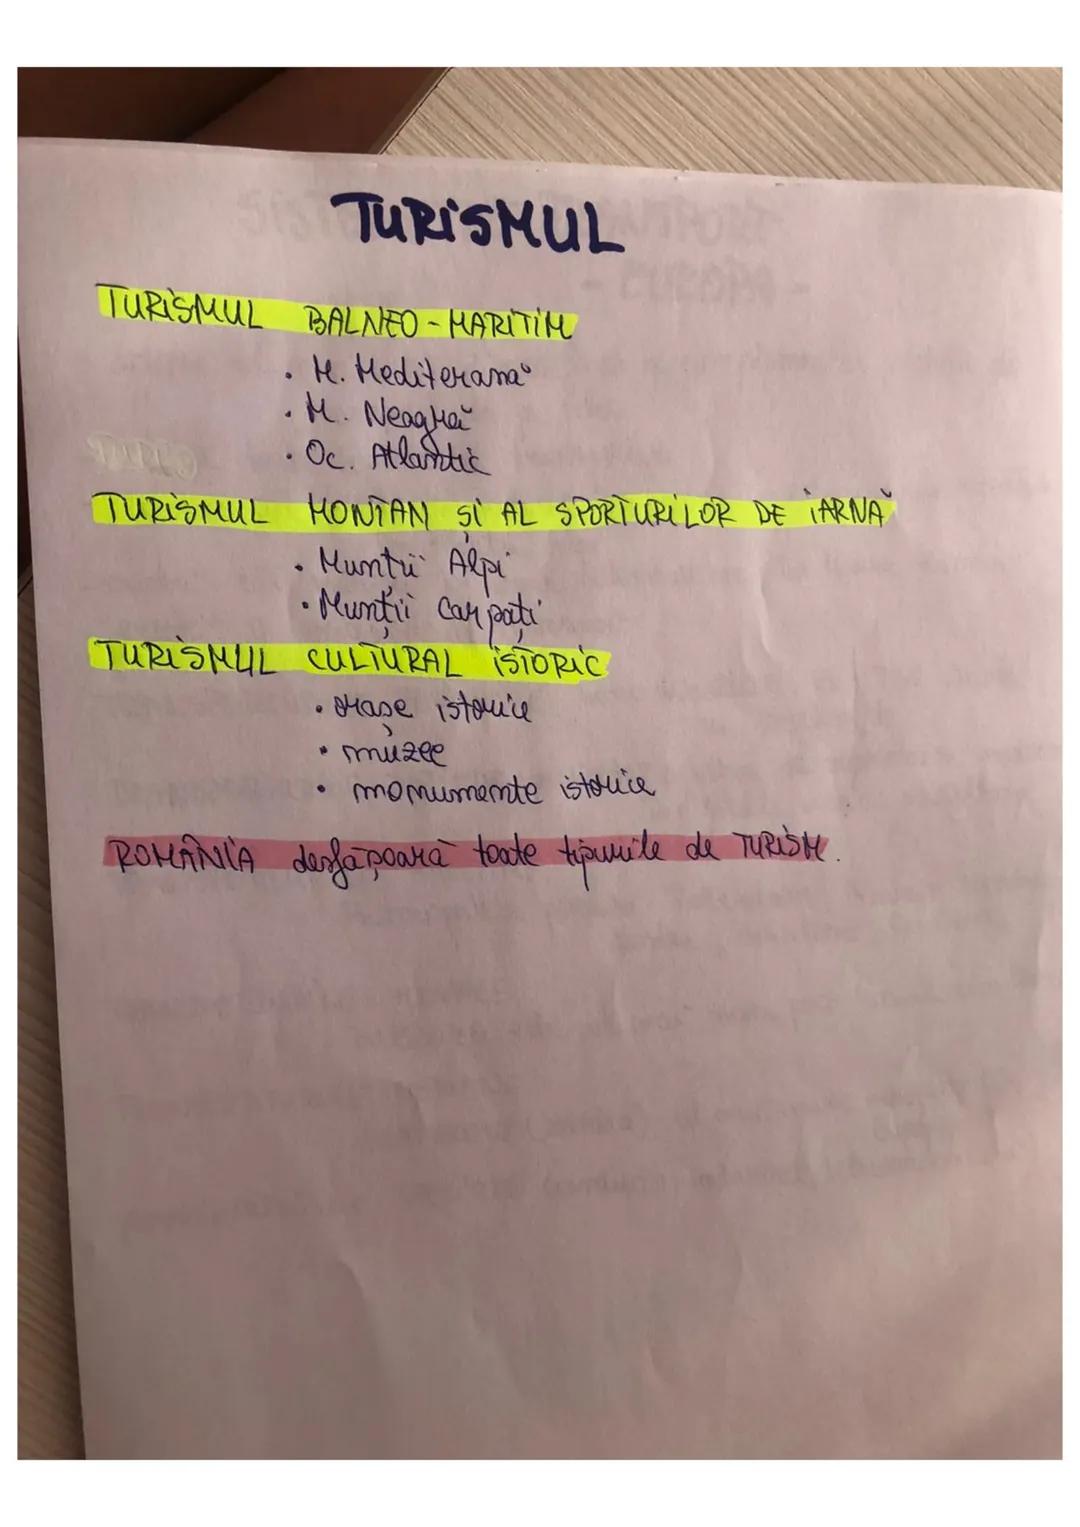 TURISMUL
TURISMUL BALNEO-MARITIM
• M. Mediterană
• M. Neagră
• Oc. Atlantic
TURISMUL MONTAN ȘI AL SPORTURILOR DE IARNĂ
• Munții Alpi
• Munții Carpați
TURISMUL CULTURAL ISTORIC
• orașe istorice
• muzee
• monumente istorice
ROMÂNIA desfășoară toate tipurile de TURISM.